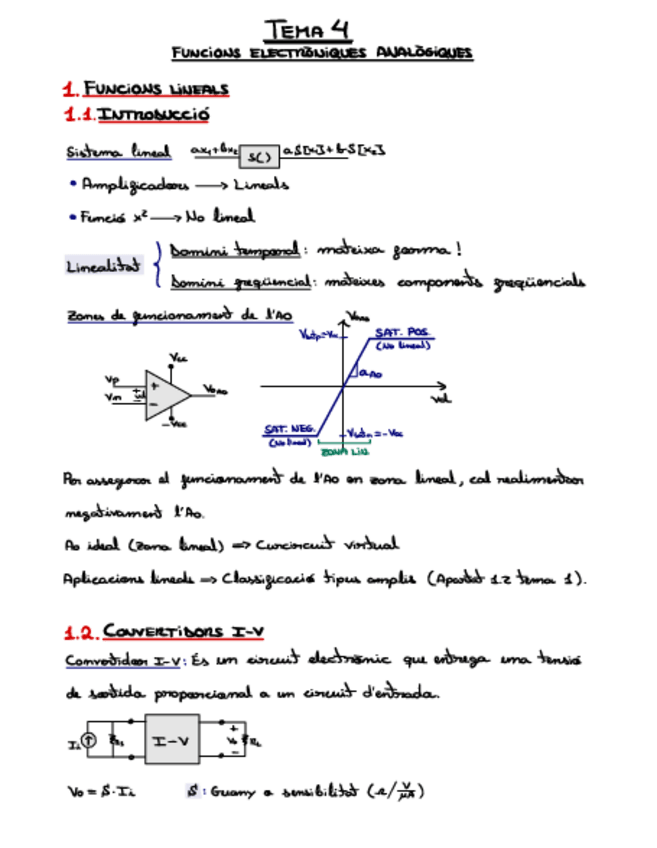 TEMA 4
FUNCIONS ELECTRÒNIQUES ANALÒGIQUES
1. FUNCIONS LINEALS
1.1. INTRODUCCIÓ
Sistema lineal ax₁+bx₂ S() aS[x₁]+bS[x₂]
• Amplificadors → Lineals
• Funció x² → No lineal
Linealitat
Domini temporal: mateixa forma!
Domini freqüencial: mateixes components freqüencials
Zones de funcionament de l'AO
Vcc
Vp
Vm
+
−
Vid
VoAO
-Vcc
VoAO
Vsatp=Vcc
SAT. POS.
(No lineal)
aAO
Vid
SAT. NEG.
(No lineal)
Vsatn=-Vcc
ZONA LIN.
Per assegurar el funcionament de l'AO en zona lineal, cal realimentar
negativament l'AO.
AO ideal (zona lineal) => Curcircuit virtual
Aplicacions lineals => Classificació tipus amplis (Apartat 1.2 tema 1).
1.2. CONVERTIDORS I-V
Convertidor I-V: És un circuit electrònic que entrega una tensió
de sortida proporcional a un circuit d'entrada.
Ii
I-V
+
Vo
−
RL
Vo = S·Ii S: Guany o sensibilitat (Ω/V/μA)